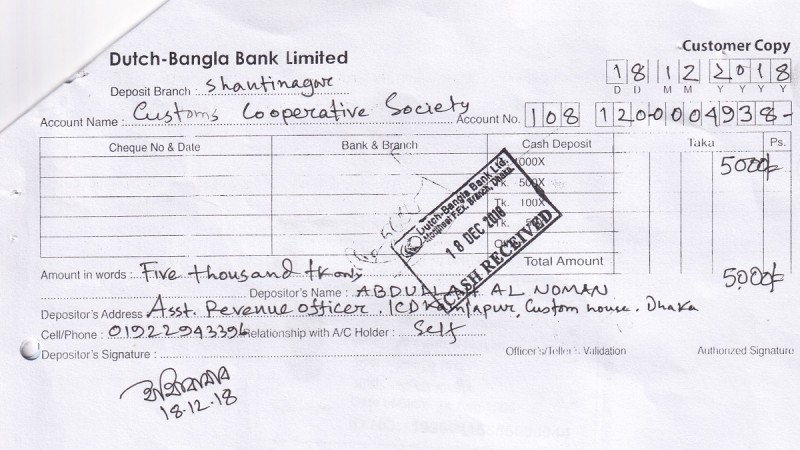 Customer Copy
Dutch-Bangla Bank Limited
18 12 2018
D D M M Y Y Y Y
Deposit Branch : Shantinagar
Account Name : Customs Cooperative Society Account No. 108 1200004938-
Cheque No & Date Bank & Branch Cash Deposit Taka Ps.
1000X 5000/-
Tk. 500X
Tk. 100X
Tk.
Dutch-Bangla Bank Ltd.
Motijheel F.Ex. Branch, Dhaka
18 DEC 2018
CASH RECEIVED
Total Amount 5000/-
Amount in words : Five thousand tk only
Depositor's Name : ABDULLAH AL NOMAN
Depositor's Address Asst. Revenue officer, ICD Kamlapur, Custom house. Dhaka
Cell/Phone : 01922943396 Relationship with A/C Holder : Self
Depositor's Signature : Officer's/Teller's Validation Authorized Signature
18.12.18